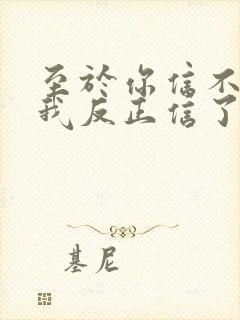 至於你信不
我反正信了
基尼